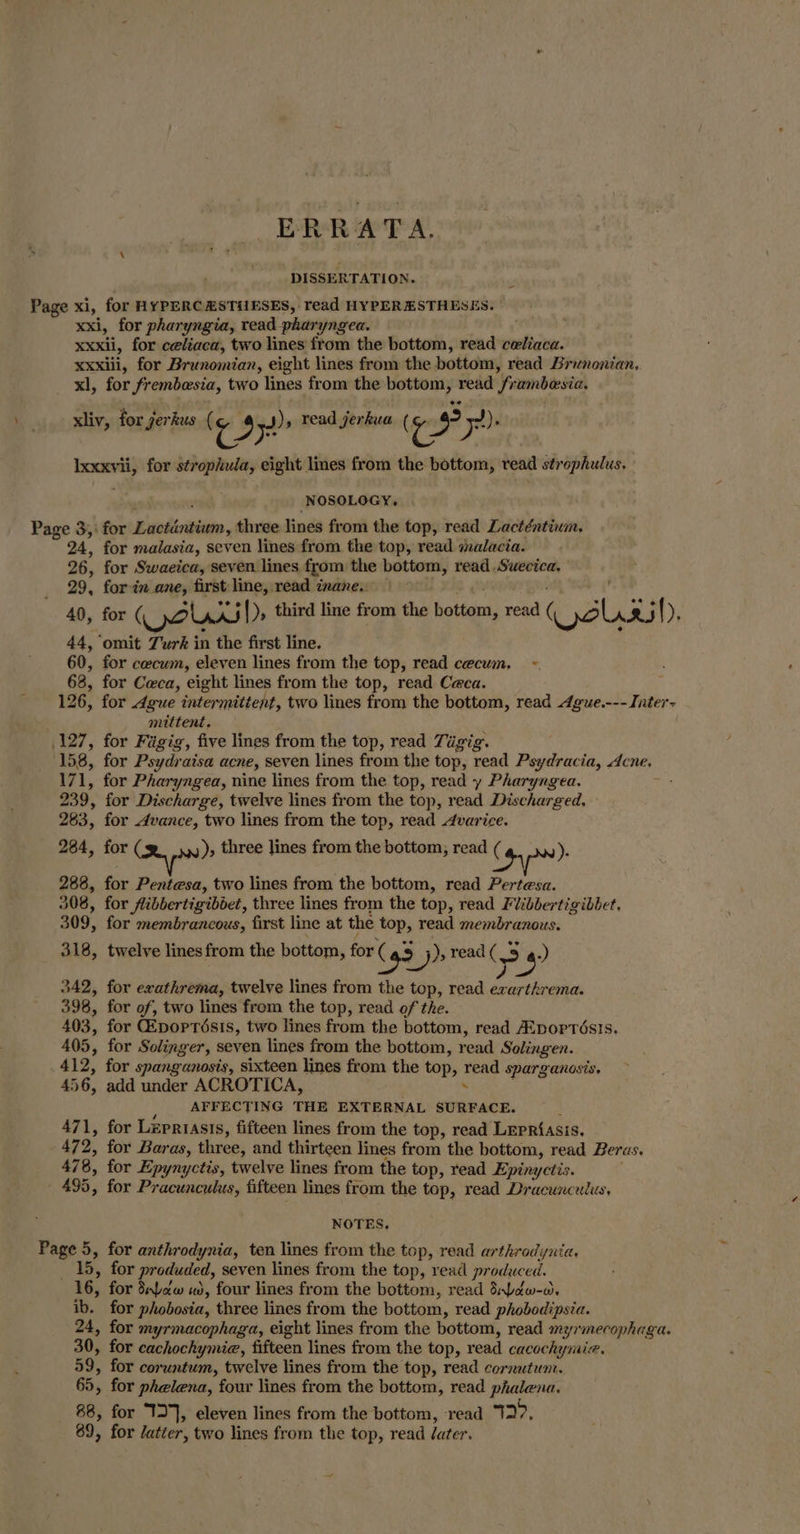 ERRATA.
DISSERTATION.
Page xi, for HYPERCÆSTHESES, read HYPERÆSTHESES.
xxi, for pharyngia, read pharyngea.
xxxii, for cœliaca, two lines from the bottom, read cœliaca.
xxxiii, for Brunomian, eight lines from the bottom, read Brunonian.
xl, for frembœsia, two lines from the bottom, read frambœsia.
xliv, for jerkus ( ), read jerkua ( ).
lxxxvii, for strophula, eight lines from the bottom, read strophulus.
NOSOLOGY.
Page 3, for Lactántium, three lines from the top, read Lacténtium.
24, for malasia, seven lines from the top, read malacia.
26, for Swaeica, seven lines from the bottom, read Suecica.
29, for in ane, first line, read inane.
40, for ( ), third line from the bottom, read ( ).
44, omit Turk in the first line.
60, for cœcum, eleven lines from the top, read cæcum.
68, for Cœca, eight lines from the top, read Cæca.
126, for Ague intermittent, two lines from the bottom, read Ague.---Inter-
mittent.
127, for Fügig, five lines from the top, read Tügig.
158, for Psydraisa acne, seven lines from the top, read Psydracia, Acne.
171, for Pharyngea, nine lines from the top, read γ Pharyngea.
239, for Discharge, twelve lines from the top, read Discharged.
283, for Avance, two lines from the top, read Avarice.
284, for ( ), three lines from the bottom, read ( ).
288, for Pentæsa, two lines from the bottom, read Pertæsa.
308, for flibbertigibbet, three lines from the top, read Flibbertigibbet.
309, for membrancous, first line at the top, read membranous.
318, twelve lines from the bottom, for ( ), read ( )
342, for exathrema, twelve lines from the top, read exarthrema.
398, for of, two lines from the top, read of the.
403, for ŒDOPTÓSIS, two lines from the bottom, read ÆDOPTÓSIS.
405, for Solinger, seven lines from the bottom, read Solingen.
412, for spanganosis, sixteen lines from the top, read sparganosis.
456, add under ACROTICA,
AFFECTING THE EXTERNAL SURFACE.
471, for LEPRIASIS, fifteen lines from the top, read LEPRÍASIS.
472, for Baras, three, and thirteen lines from the bottom, read Beras.
478, for Epynyctis, twelve lines from the top, read Epinyctis.
495, for Pracunculus, fifteen lines from the top, read Dracunculus.
NOTES.
Page 5, for anthrodynia, ten lines from the top, read arthrodynia.
15, for produded, seven lines from the top, read produced.
16, for διψάω ω, four lines from the bottom, read διψάω-ῶ.
ib. for phobosia, three lines from the bottom, read phobodipsia.
24, for myrmacophaga, eight lines from the bottom, read myrmecophaga.
30, for cachochymiæ, fifteen lines from the top, read cacochymiæ.
59, for coruntum, twelve lines from the top, read cornutum.
65, for phelena, four lines from the bottom, read phalena.
88, for eleven lines from the bottom, read
89, for latter, two lines from the top, read later.